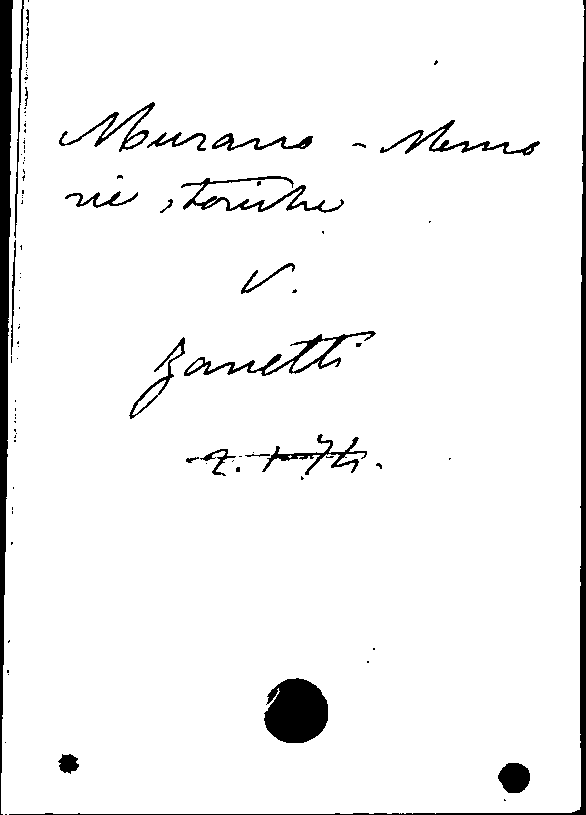 Murano - Memo
rie storiche
V.
Zanetti